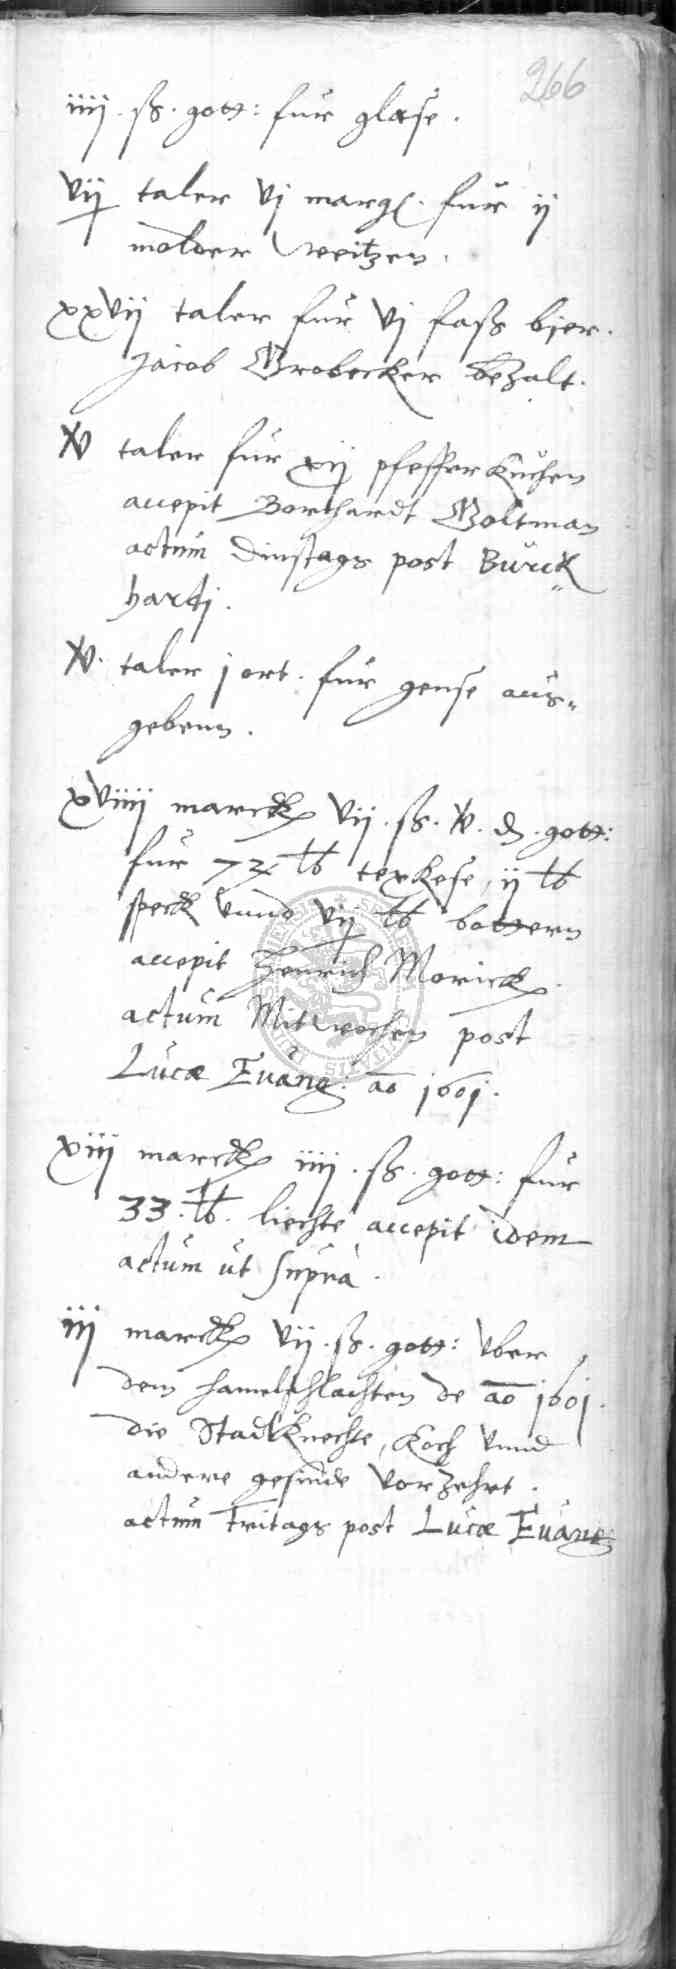 266
iiij. ß. gott: fur glase.
vij taler vj marg. fur ij
molder weitzen.
xxvij taler fur vj fass bier.
Jacob Grobecker bezalt.
xv taler fur xij pfefferkuchen
accepit Borchardt Goltman
actum Dinstags post Burck„
hardj.
xv. taler j ort. fur gense aus„
gebenn.
xviiij marck vij. ß. v. d. gott:
fur 72 lb texkese, ij lb
speck vnnd vij lb bottern
accepit Henrich Morick.
actum Mitwochen post
Lucæ Euang: ao 1601.
xiij marck iiij. ß. gott: fur
33. lb. liechte accepit idem
actum ut supra.
iij marck vij. ß. gott: vber
dem hamelschlachten de ao 1601.
die Stadtknechte, Koch vnnd
andere gesinde vorzehrt.
actum Fritags post Lucæ Euang: